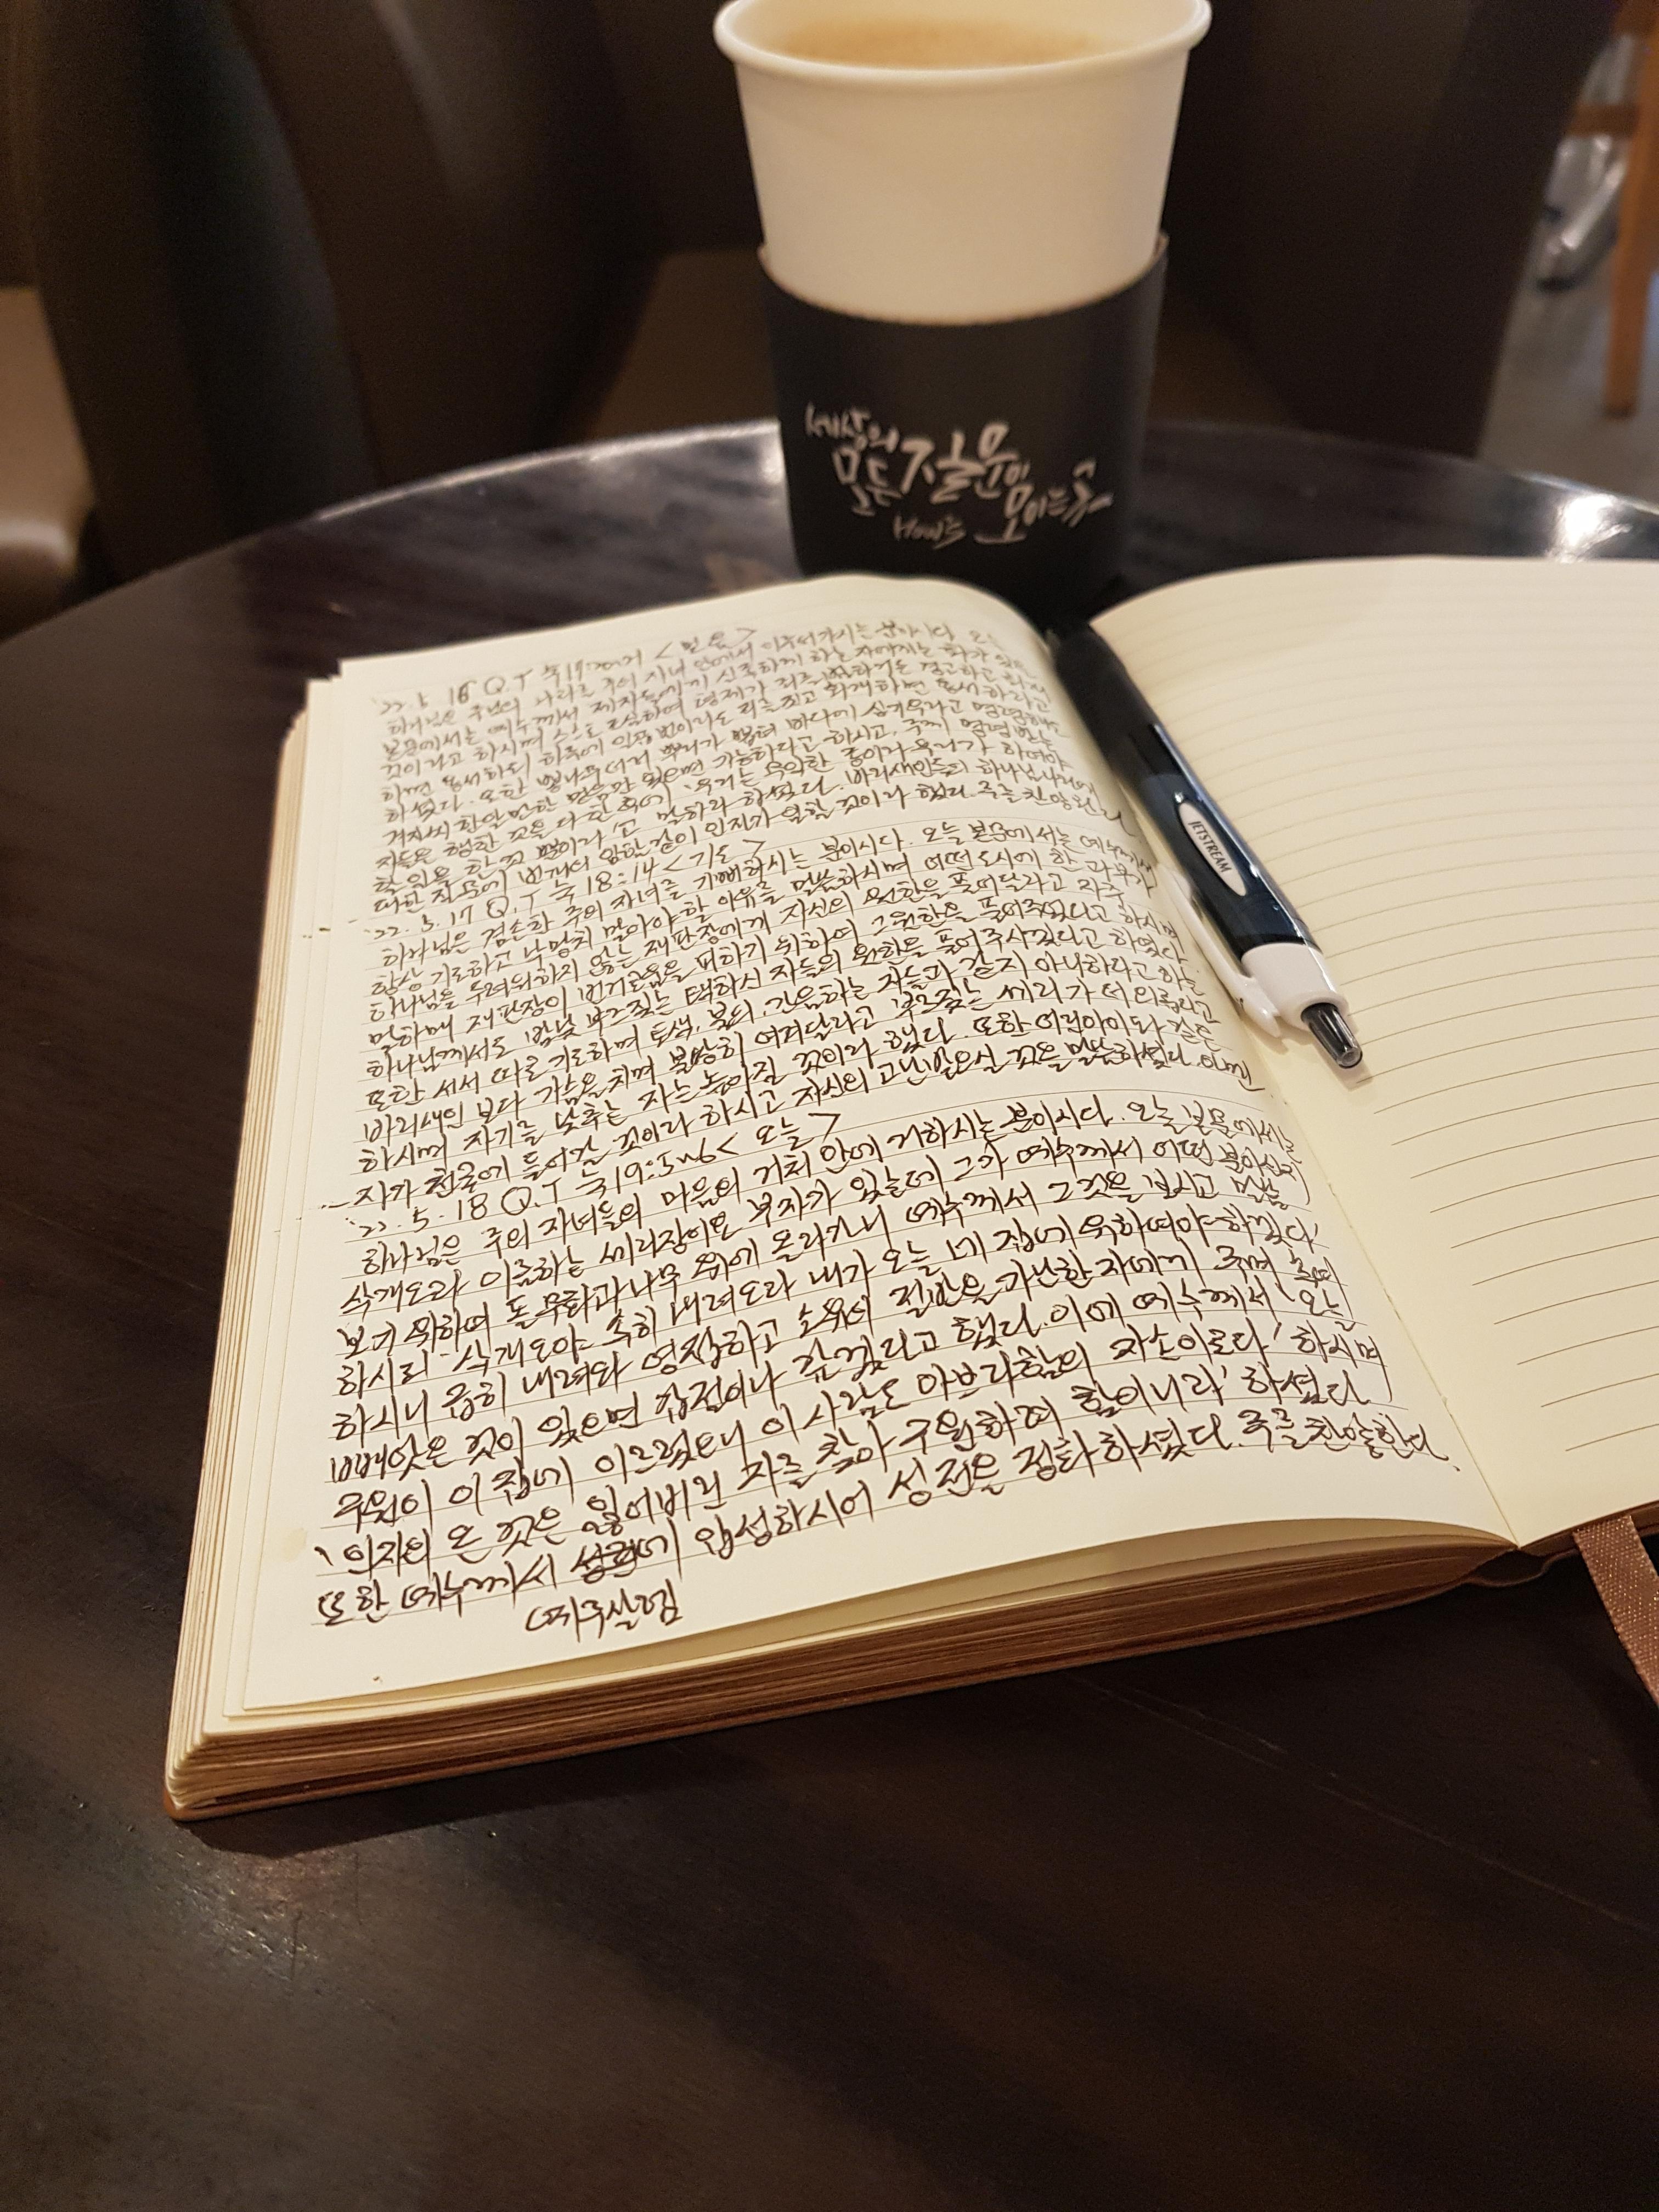 세상의
모든 질문이
모이는 곳
How's
JETSTREAM
'22. 5. 16 Q.T 눅 17:20~21 <믿음>
하나님은 주님의 나라를 주의 자녀 안에서 이루어가시는 분이시다. 오늘
본문에서는 예수께서 제자들에게 실족하게 하는 자에게는 화가 있을
것이라고 하시며 스스로 조심하여 형제가 죄를 범하거든 경고하고 회개
하면 용서하되 하루에 일곱 번이라도 죄를 짓고 회개하면 용서하라고
하셨다. 또한 뽕나무더러 뿌리가 뽑혀 바다에 심기우라고 명령하면
겨자씨 한알만한 믿음만 있으면 가능하다고 하시고, 주께 명령받은
자들은 행한 것을 다 한 후에 '우리는 무익한 종이라 우리가 하여야
할 일을 한 것 뿐이라'고 말하라 하셨다. 바리새인들의 하나님나라에
대한 질문에 번개의 왕함같이 인자가 임할 것이라 했다. 주를 찬양한다.
'22. 5. 17 Q.T 눅 18:14 <기도>
하나님은 겸손한 주의 자녀를 기뻐하시는 분이시다. 오늘 본문에서는 예수께서
항상 기도하고 낙망치 말아야 할 이유를 말씀하시며 어떤 도시에 한 과부가
하나님을 두려워하지 않는 재판장에게 자신의 원한을 풀어달라고 자주
말하매 재판장이 번거로움을 피하기 위하여 그 원한을 풀어주었다고 하시며
하나님께서도 밤낮 부르짖는 택하신 자들의 원한을 풀어주시겠다고 하였다.
또한 서서 따로 기도하며 토색, 불의, 간음하는 자들과 같지 아니하다고 하는
바리새인 보다 가슴을 치며 불쌍히 여겨달라고 부르짖는 세리가 더 의롭다고
하시며 자기를 낮추는 자는 높아질 것이라 했다. 또한 어린아이와 같은
자가 천국에 들어갈 것이라 하시고 자신의 고난받으실 것을 말씀하셨다. 아멘
'22. 5. 18 Q.T 눅 19:5~6 <오늘>
하나님은 주의 자녀들의 마음의 거처 안에 거하시는 분이시다. 오늘 본문에서는
삭개오라 이름하는 세리장이요 부자가 있는데 그가 예수께서 어떤 분이신지
보기 위하여 돌무화과나무 위에 올라가니 예수께서 그것을 보시고 말씀
하시되 '삭개오야 속히 내려오라 내가 오늘 네 집에 유하여야 하겠다'
하시니 급히 내려와 영접하고 소유의 절반을 가난한 자에게 주며 혹여
빼앗은 것이 있으면 갑절이나 갚겠다고 했다. 이에 예수께서 '오늘
구원이 이 집에 이르렀으니 이 사람도 아브라함의 자손이로다' 하시며
'인자의 온 것은 잃어버린 자를 찾아 구원하려 함이니라' 하셨다.
또한 예수께서 성전에 입성하시어 성전을 정화하셨다. 주를 찬양한다.
예루살렘